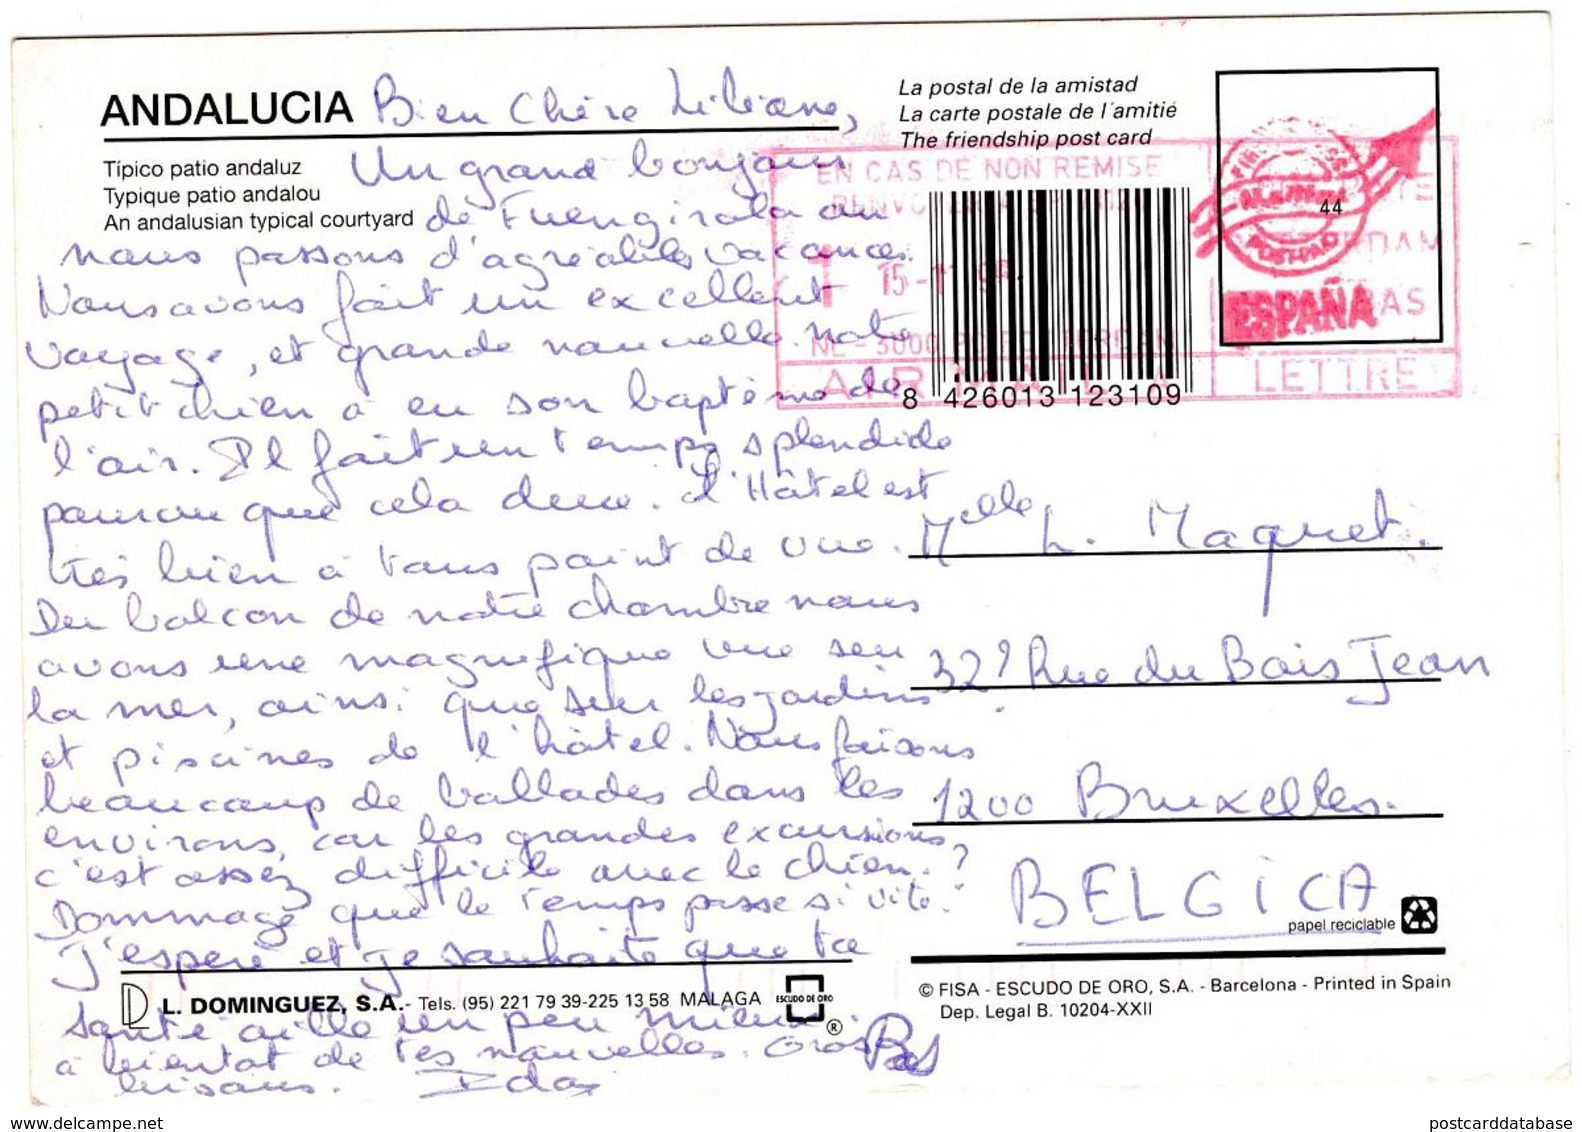 ANDALUCIA
Típico patio andaluz
Typique patio andalou
An andalusian typical courtyard
Bien Chère Liliane,
Un grand bonjour
de Fuengirola ou
nous passons d'agréables vacances.
Nous avons fait un excellent
voyage, et grande nouvelle notre
petit chien a eu son baptême de
l'air. Il fait un temps splendide
pourvu que cela dure. L'Hôtel est
très bien à tous point de vue.
Du balcon de notre chambre nous
avons une magnifique vue sur
la mer, ainsi que sur les jardins
et piscines de l'hôtel. Nous faisons
beaucoup de ballades dans les
environs, car les grandes excursions,
c'est assez difficile avec le chien.
Dommage que le temps passe si vite.
J'espère et je souhaite que ta
santé aille un peu mieux.
à bientot de tes nouvelles. Gros
bisous. Ida
La postal de la amistad
La carte postale de l'amitié
The friendship post card
EN CAS DE NON REMISE
15-1
44
ESPAÑA
LETTRE
8 426013 123109
Melle L. Maquet.
32, Rue du Bois Jean
1200 Bruxelles.
BELGICA
papel reciclable
L. DOMINGUEZ, S.A. - Tels. (95) 221 79 39-225 13 58 MALAGA
ESCUDO DE ORO
®
© FISA - ESCUDO DE ORO, S.A. - Barcelona - Printed in Spain
Dep. Legal B. 10204-XXII
delcampe.net
postcarddatabase